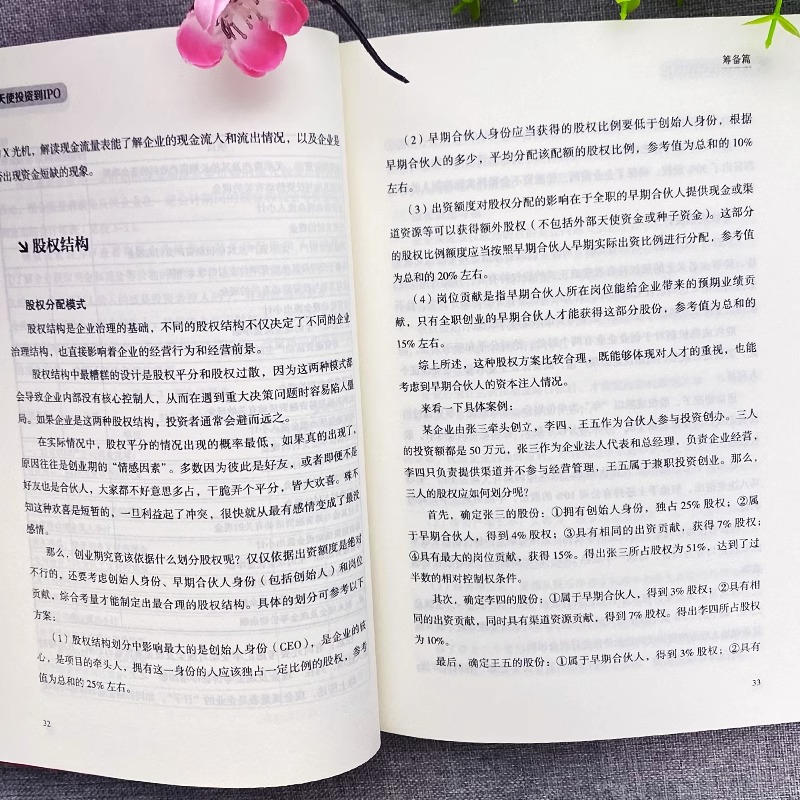 天使投资到IPO
X光机，解读现金流量表能了解企业的现金流入和流出情况，以及企业是
出现资金短缺的现象。
↘股权结构
股权分配模式
股权结构是企业治理的基础，不同的股权结构不仅决定了不同的企业
治理结构，也直接影响着企业的经营行为和经营前景。
股权结构中最糟糕的设计是股权平分和股权过散，因为这两种模式都
会导致企业内部没有核心控制人，从而在遇到重大决策问题时容易陷入僵
局。如果企业是这两种股权结构，投资者通常会避而远之。
在实际情况中，股权平分的情况出现的概率最低，如果真的出现了，
原因往往是创业期的“情感因素”。多数因为彼此是好友，或者即便不是
好友也是合伙人，大家都不好意思多占，干脆弄个平分，皆大欢喜。殊不
知这种欢喜是短暂的，一旦利益起了冲突，很快就从最有感情变成了最没
感情。
那么，创业期究竟该依据什么划分股权呢？仅仅依据出资额度是绝对
不行的，还要考虑创始人身份、早期合伙人身份（包括创始人）和岗位
贡献，综合考量才能制定出最合理的股权结构。具体的划分可参考以下
方案：
（1）股权结构划分中影响最大的是创始人身份（CEO），是企业的核
心，是项目的牵头人，拥有这一身份的人应该独占一定比例的股权，参考
值为总和的25%左右。
32
筹备篇
（2）早期合伙人身份应当获得的股权比例要低于创始人身份，根据
早期合伙人的多少，平均分配该配额的股权比例，参考值为总和的10%
左右。
（3）出资额度对股权分配的影响在于全职的早期合伙人提供现金或渠
道资源等可以获得额外股权（不包括外部天使资金或种子资金）。这部分
的股权比例额度应当按照早期合伙人早期实际出资比例进行分配，参考值
为总和的20%左右。
（4）岗位贡献是指早期合伙人所在岗位能给企业带来的预期业绩贡
献，只有全职创业的早期合伙人才能获得这部分股份，参考值为总和的
15%左右。
综上所述，这种股权方案比较合理，既能够体现对人才的重视，也能
考虑到早期合伙人的资本注入情况。
来看一下具体案例：
某企业由张三牵头创立，李四、王五作为合伙人参与投资创办。三人
的投资额都是50万元，张三作为企业法人代表和总经理，负责企业经营，
李四只负责提供渠道并不参与经营管理，王五属于兼职投资创业。那么，
三人的股权应如何划分呢？
首先，确定张三的股份：①拥有创始人身份，独占25%股权；②属
于早期合伙人，得到4%股权；③具有相同的出资贡献，获得7%股权；
④具有最大的岗位贡献，获得15%。得出张三所占股权为51%，达到了过
半数的相对控制权条件。
其次，确定李四的股份：①属于早期合伙人，得到3%股权；②具有相
同的出资贡献，同时具有渠道资源贡献，得到7%股权。得出李四所占股权
为10%。
最后，确定王五的股份：①属于早期合伙人，得到3%股权；②具有
33